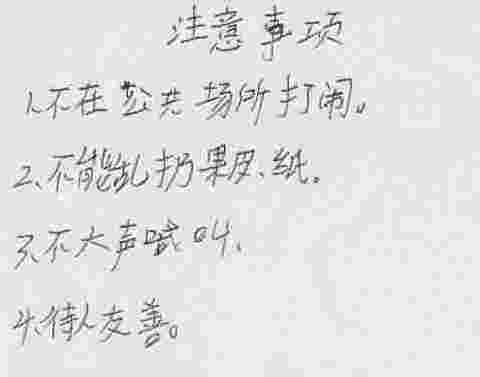 注意事项
1、不在公共场所打闹。
2、不能乱扔果皮、纸。
3、不大声喊叫、
4、待人友善。